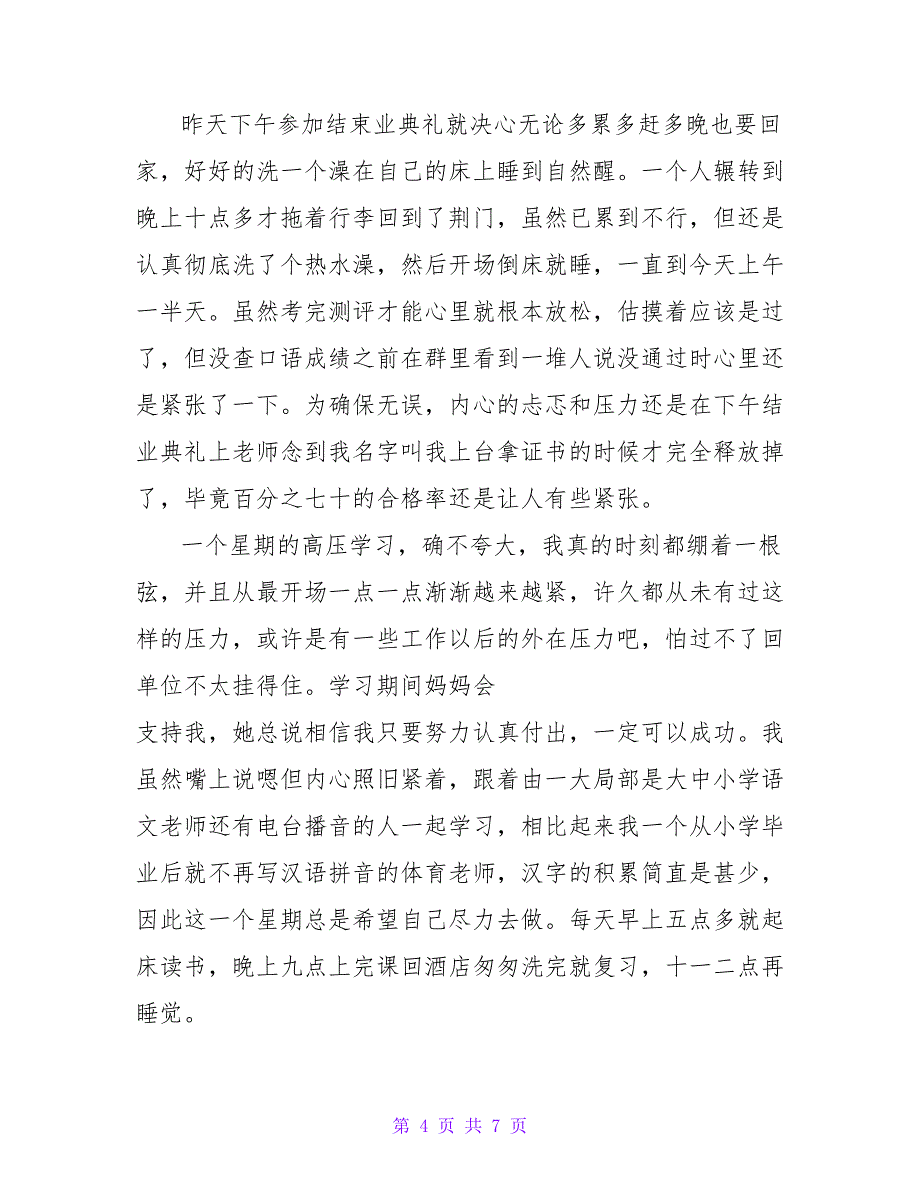 昨天下午参加结束业典礼就决心无论多累多赶多晚也要回
家，好好的洗一个澡在自己的床上睡到自然醒。一个人辗转到
晚上十点多才拖着行李回到了荆门，虽然已累到不行，但还是
认真彻底洗了个热水澡，然后开场倒床就睡，一直到今天上午
一半天。虽然考完测评才能心里就根本放松，估摸着应该是过
了，但没查口语成绩之前在群里看到一堆人说没通过时心里还
是紧张了一下。为确保无误，内心的忐忑和压力还是在下午结
业典礼上老师念到我名字叫我上台拿证书的时候才完全释放掉
了，毕竟百分之七十的合格率还是让人有些紧张。
一个星期的高压学习，确不夸大，我真的时刻都绷着一根
弦，并且从最开场一点一点渐渐越来越紧，许久都从未有过这
样的压力，或许是有一些工作以后的外在压力吧，怕过不了回
单位不太挂得住。学习期间妈妈会
支持我，她总说相信我只要努力认真付出，一定可以成功。我
虽然嘴上说嗯但内心照旧紧着，跟着由一大局部是大中小学语
文老师还有电台播音的人一起学习，相比起来我一个从小学毕
业后就不再写汉语拼音的体育老师，汉字的积累简直是甚少，
因此这一个星期总是希望自己尽力去做。每天早上五点多就起
床读书，晚上九点上完课回酒店匆匆洗完就复习，十一二点再
睡觉。
第 4 页 共 7 页